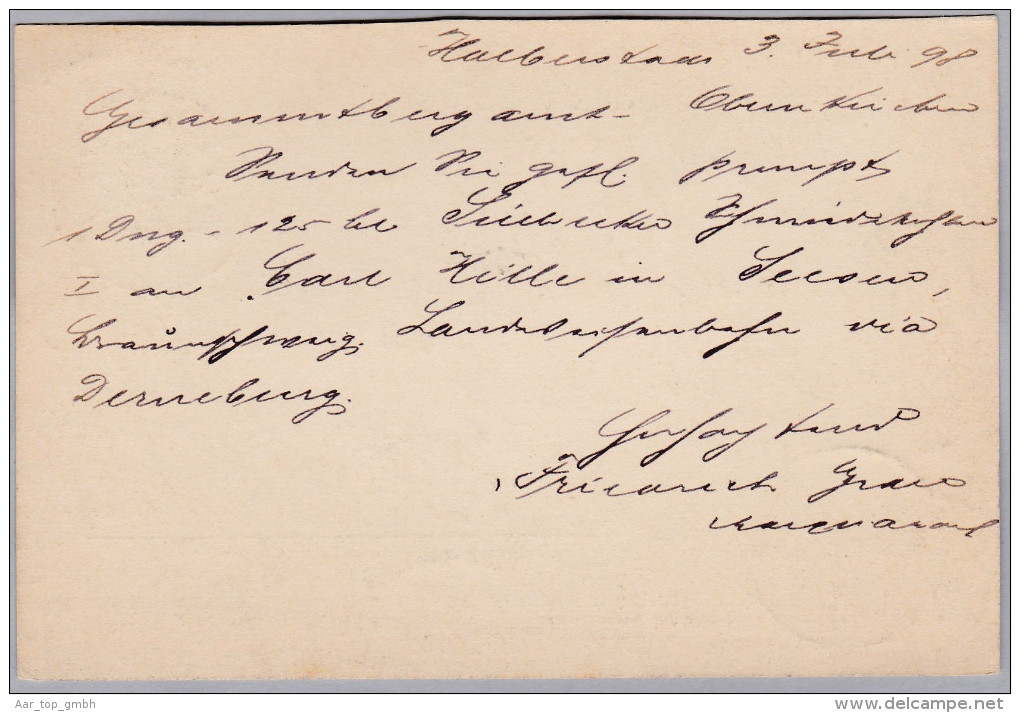 Halberstadt 3. Juli 98
Gesammtbergamt - Obernkirchen
Senden Sie gefl. prompt
1 Dwg. - 125 Ct Schmiedekohlen
I an Carl Hille in Seesen,
braunschweig. Landeseisenbahn via
Derneburg.
Hochachtend
Friedrich
Aar_top_gmbh
delcampe.net